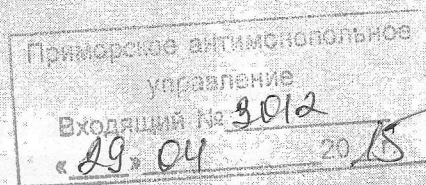 Приморское антимонопольное
управление
Входящий № 3012
« 29 » 04 2015